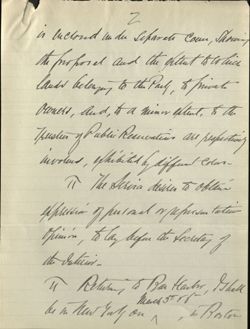 2
is enclosed under separate cover, showing
the proposal and the extent to which
lands belonging to the Park, to private
owners, and, to a minor extent, to the
Trustees of Public Reservations are respectively
involved, exhibited by different colors.
¶ The Service desires to obtain
expression of personal or representative
opinion, to lay before the Secretary of
the Interior.
¶ Returning to Bar Harbor, I shall
be in New York on March 5th
in Boston